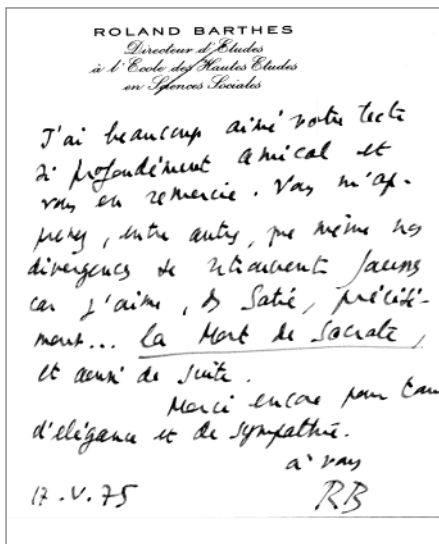 ROLAND BARTHES
Directeur d'Etudes
à l'Ecole des Hautes Etudes
en Sciences Sociales
J'ai beaucoup aimé votre texte
si profondément amical et
vous en remercie. Vous m'ap-
prenez, entre autres, que même nos
divergences se retrouvent
car j'aime, ds Satie, précisé-
ment... La Mort de Socrate,
et ainsi de suite.
Merci encore pour tan
d'élégance et de sympathie.
à vous
17.V.75 RB